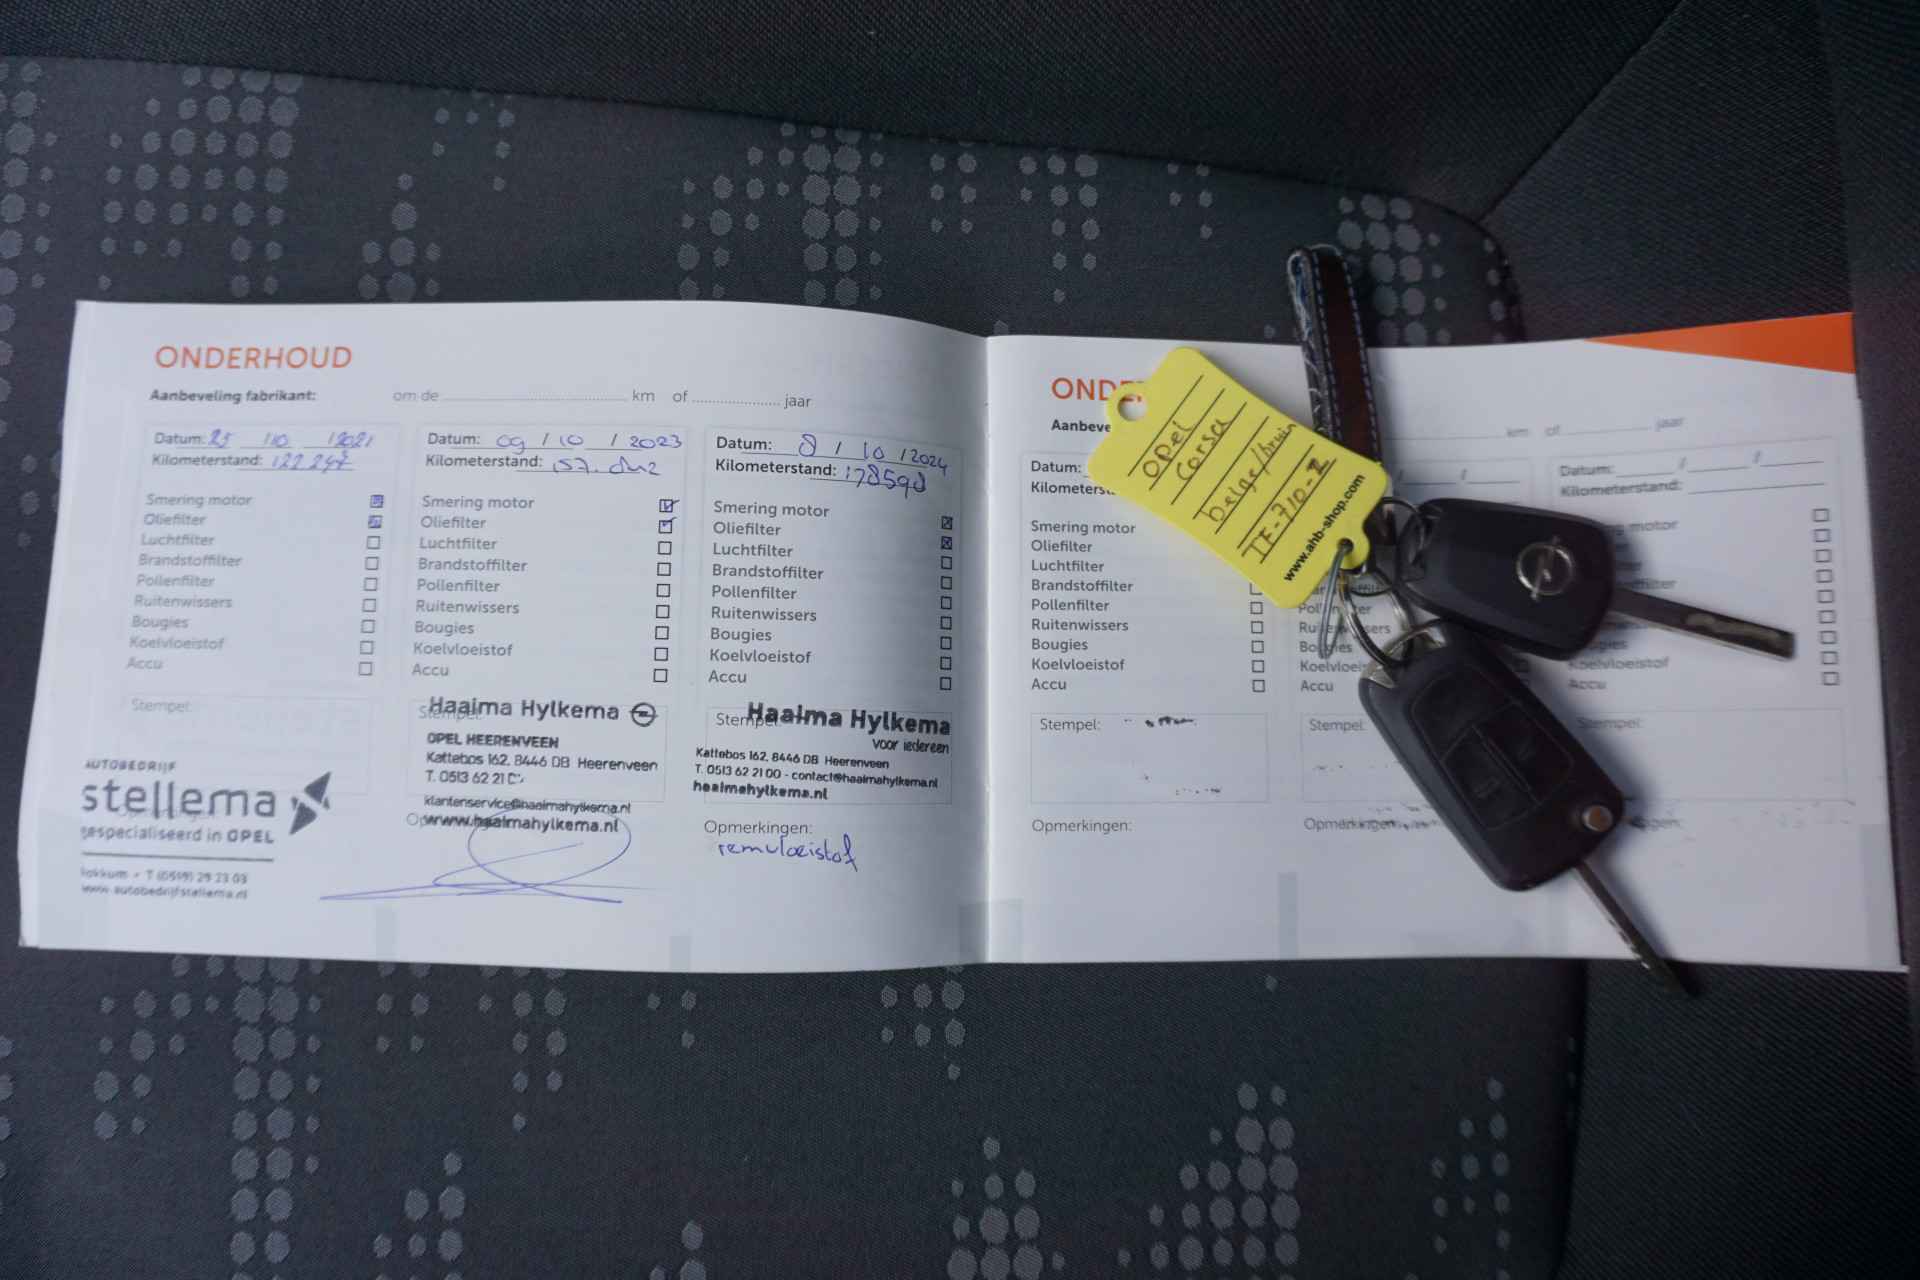 ONDERHOUD
Aanbeveling fabrikant: om de km of jaar
Datum: 25 /10 /2021
Kilometerstand: 122.247
Smering motor
Oliefilter
Luchtfilter
Brandstoffilter
Pollenfilter
Ruitenwissers
Bougies
Koelvloeistof
Accu
Stempel:
AUTOBEDRIJF
stellema
gespecialiseerd in OPEL
Dokkum • T (0519) 29 23 03
www.autobedrijfstellema.nl
Datum: 09 / 10 / 2023
Kilometerstand: 157.
Smering motor
Oliefilter
Luchtfilter
Brandstoffilter
Pollenfilter
Ruitenwissers
Bougies
Koelvloeistof
Accu
Stempel:
Haaima Hylkema
OPEL HEERENVEEN
Kattebos 162, 8446 DB Heerenveen
T. 0513 62 21
klantenservice@haaimahylkema.nl
www.haaimahylkema.nl
Datum: 8 / 10 / 2024
Kilometerstand: 178598
Smering motor
Oliefilter
Luchtfilter
Brandstoffilter
Pollenfilter
Ruitenwissers
Bougies
Koelvloeistof
Accu
Stempel:
Haaima Hylkema
voor iedereen
Kattebos 162, 8446 DB Heerenveen
T. 0513 62 21 00 - contact@haaimahylkema.nl
haaimahylkema.nl
Opmerkingen:
remvloeistof
km of jaar
Datum:
Smering motor
Oliefilter
Luchtfilter
Brandstoffilter
Pollenfilter
Ruitenwissers
Bougies
Koelvloeistof
Accu
Stempel:
Opmerkingen:
Accu
Stempel:
Opmerkingen:
Datum: / /
Kilometerstand:
motor
Koelvloeistof
Accu
Stempel:
Opel
Corsa
beige/bruin
www.ahb-shop.com